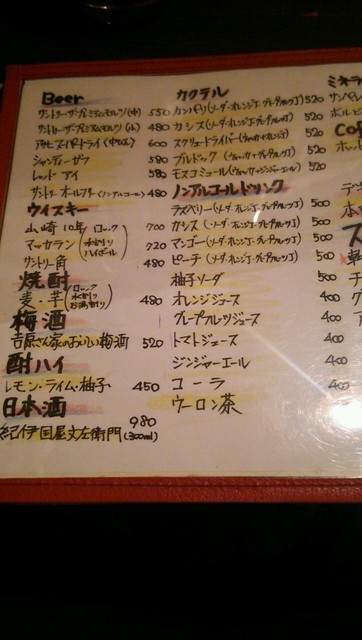 Beer
サントリー ザ・プレミアムモルツ(中) 550
サントリー ザ・プレミアムモルツ(小) 480
アサヒスーパードライ(中びん) 600
シャンディーガフ 580
レッドアイ 580
サントリー オールフリー(ノンアルコール) 480
ウイスキー
山崎10年 (ロック 水割り ハイボール) 700
マッカラン 720
サントリー角 480
焼酎
麦・芋 (ロック 水割り お湯割り) 480
梅酒
吉原さん家のおいしい梅酒 520
酎ハイ
レモン・ライム・柚子 450
日本酒
紀伊国屋文左衛門(300ml) 980
カクテル
カンパリ(ソーダ・オレンジJ・グレープフルーツJ) 520
カシス(ソーダ・オレンジJ・グレープフルーツJ) 520
スクリュードライバー(ウォッカ+オレンジ) 520
ブルドック(ウォッカ+グレープフルーツJ) 520
モスコミュール(ウォッカ+ジンジャーエール) 520
ノンアルコールドリンク
ラズベリー(ソーダ・オレンジJ・グレープフルーツJ) 500
カシス(ソーダ・オレンジJ・グレープフルーツJ) 500
マンゴー(ソーダ・オレンジJ・グレープフルーツJ) 500
ピーチ(ソーダ・オレンジJ・グレープフルーツJ) 500
柚子ソーダ 500
オレンジジュース 400
グレープフルーツジュース 400
トマトジュース 400
ジンジャーエール 400
コーラ 400
ウーロン茶 400
ミネラ
サンペレ
ボルビ
Co
ホッ